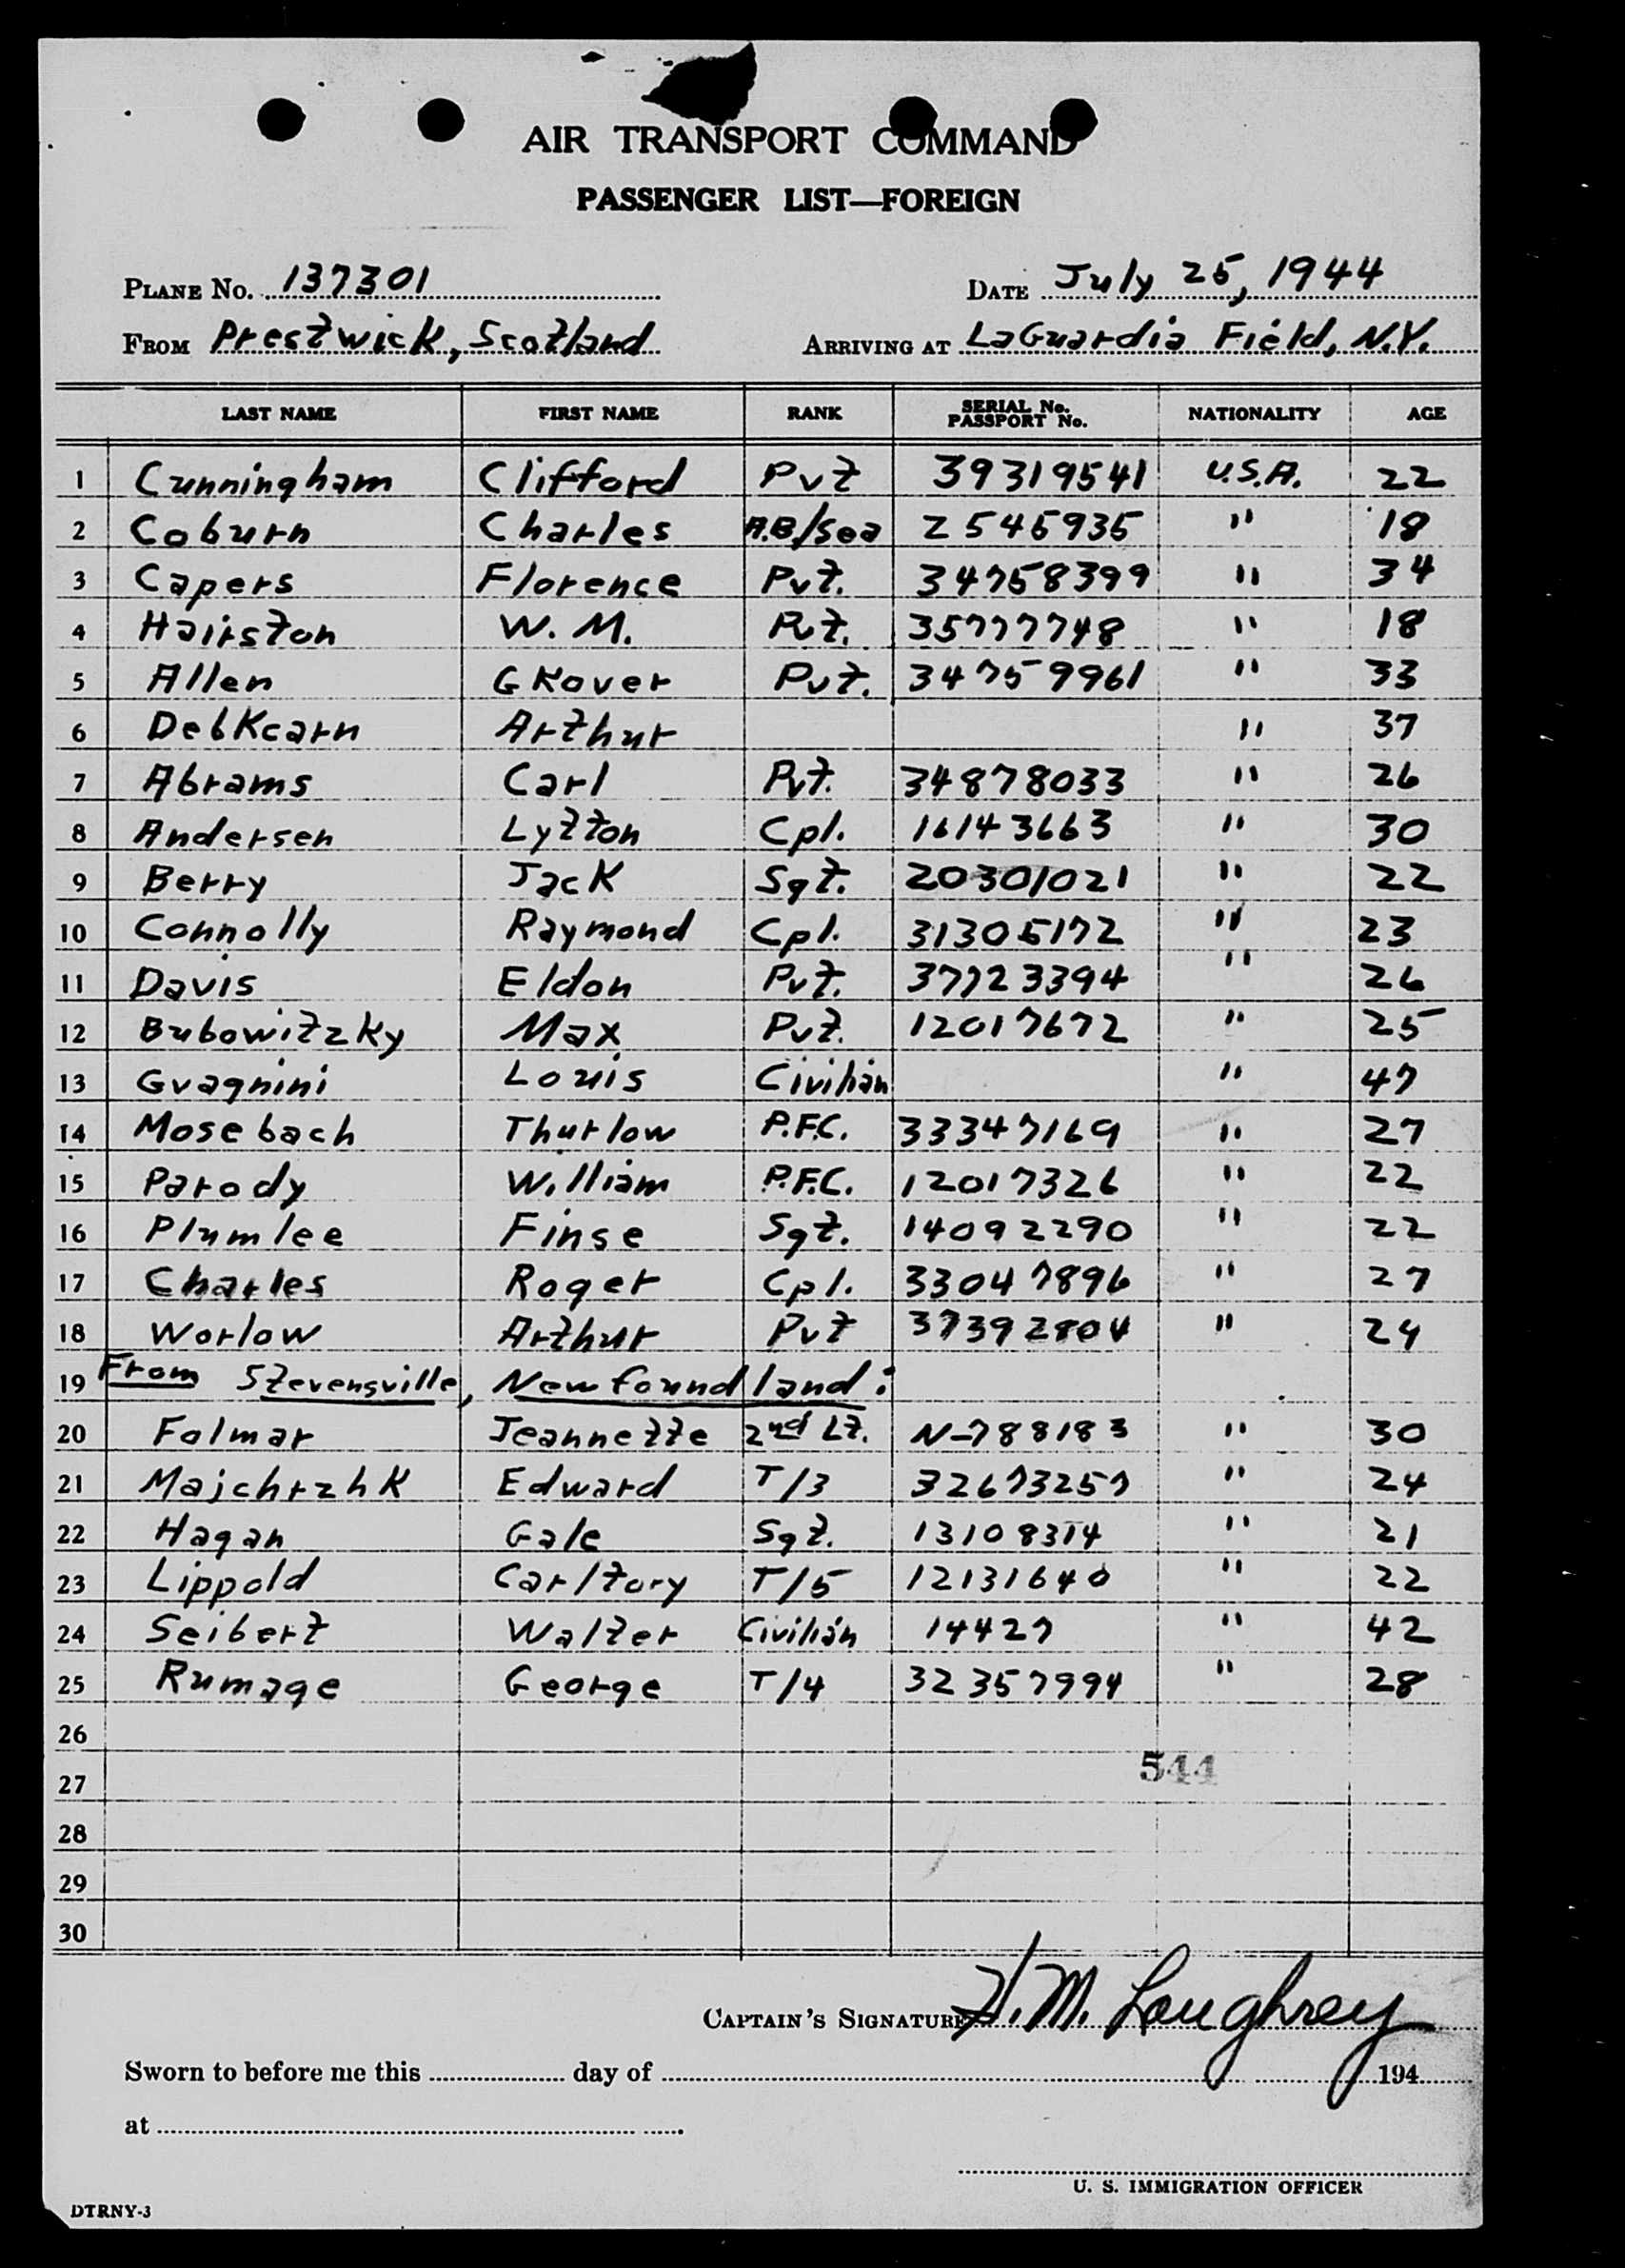 AIR TRANSPORT COMMAND
PASSENGER LIST—FOREIGN
PLANE No. 137301 DATE July 25, 1944
FROM Prestwick, Scotland ARRIVING AT LaGuardia Field, N.Y.
LAST NAME FIRST NAME RANK SERIAL No. PASSPORT No. NATIONALITY AGE
1 Cunningham Clifford Pvt 39319541 U.S.A. 22
2 Coburn Charles A.B/Sea Z 545935 " 18
3 Capers Florence Pvt. 34758399 " 34
4 Hairston W. M. Pvt. 35777748 " 18
5 Allen Grover Pvt. 34759961 " 33
6 Arthur " 37
7 Abrams Carl Pvt. 34878033 " 26
8 Andersen Lytton Cpl. 16143663 " 30
9 Berry Jack Sgt. 20301021 " 22
10 Connolly Raymond Cpl. 31305172 " 23
11 Davis Eldon Pvt. 37723394 " 26
12 Bubowitzky Max Pvt. 12017672 " 25
13 Gvagnini Louis Civilian " 47
14 Mosebach Thurlow P.F.C. 33347169 " 27
15 Parody William P.F.C. 12017326 " 22
16 Plumlee Finse Sgt. 14092290 " 22
17 Charles Roger Cpl. 33047896 " 27
18 Worlow Arthur Pvt 37392804 " 24
19 From Stevensville, Newfoundland:
20 Folmar Jeannette 2nd Lt. N-788183 " 30
21 Majchrzhk Edward T/3 32673257 " 24
22 Hagan Gale Sgt. 13108314 " 21
23 Lippold T/5 12131640 " 22
24 Seibert Walter Civilian 14427 " 42
25 Rumage George T/4 32357994 " 28
26
544
27
28
29
30
CAPTAIN'S SIGNATURE H. M. Loughrey
Sworn to before me this day of 194
at
U. S. IMMIGRATION OFFICER
DTRNY-3